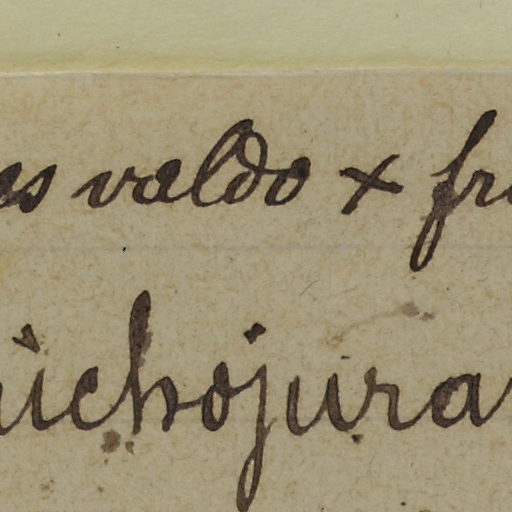 es valdo + fr
uichojura